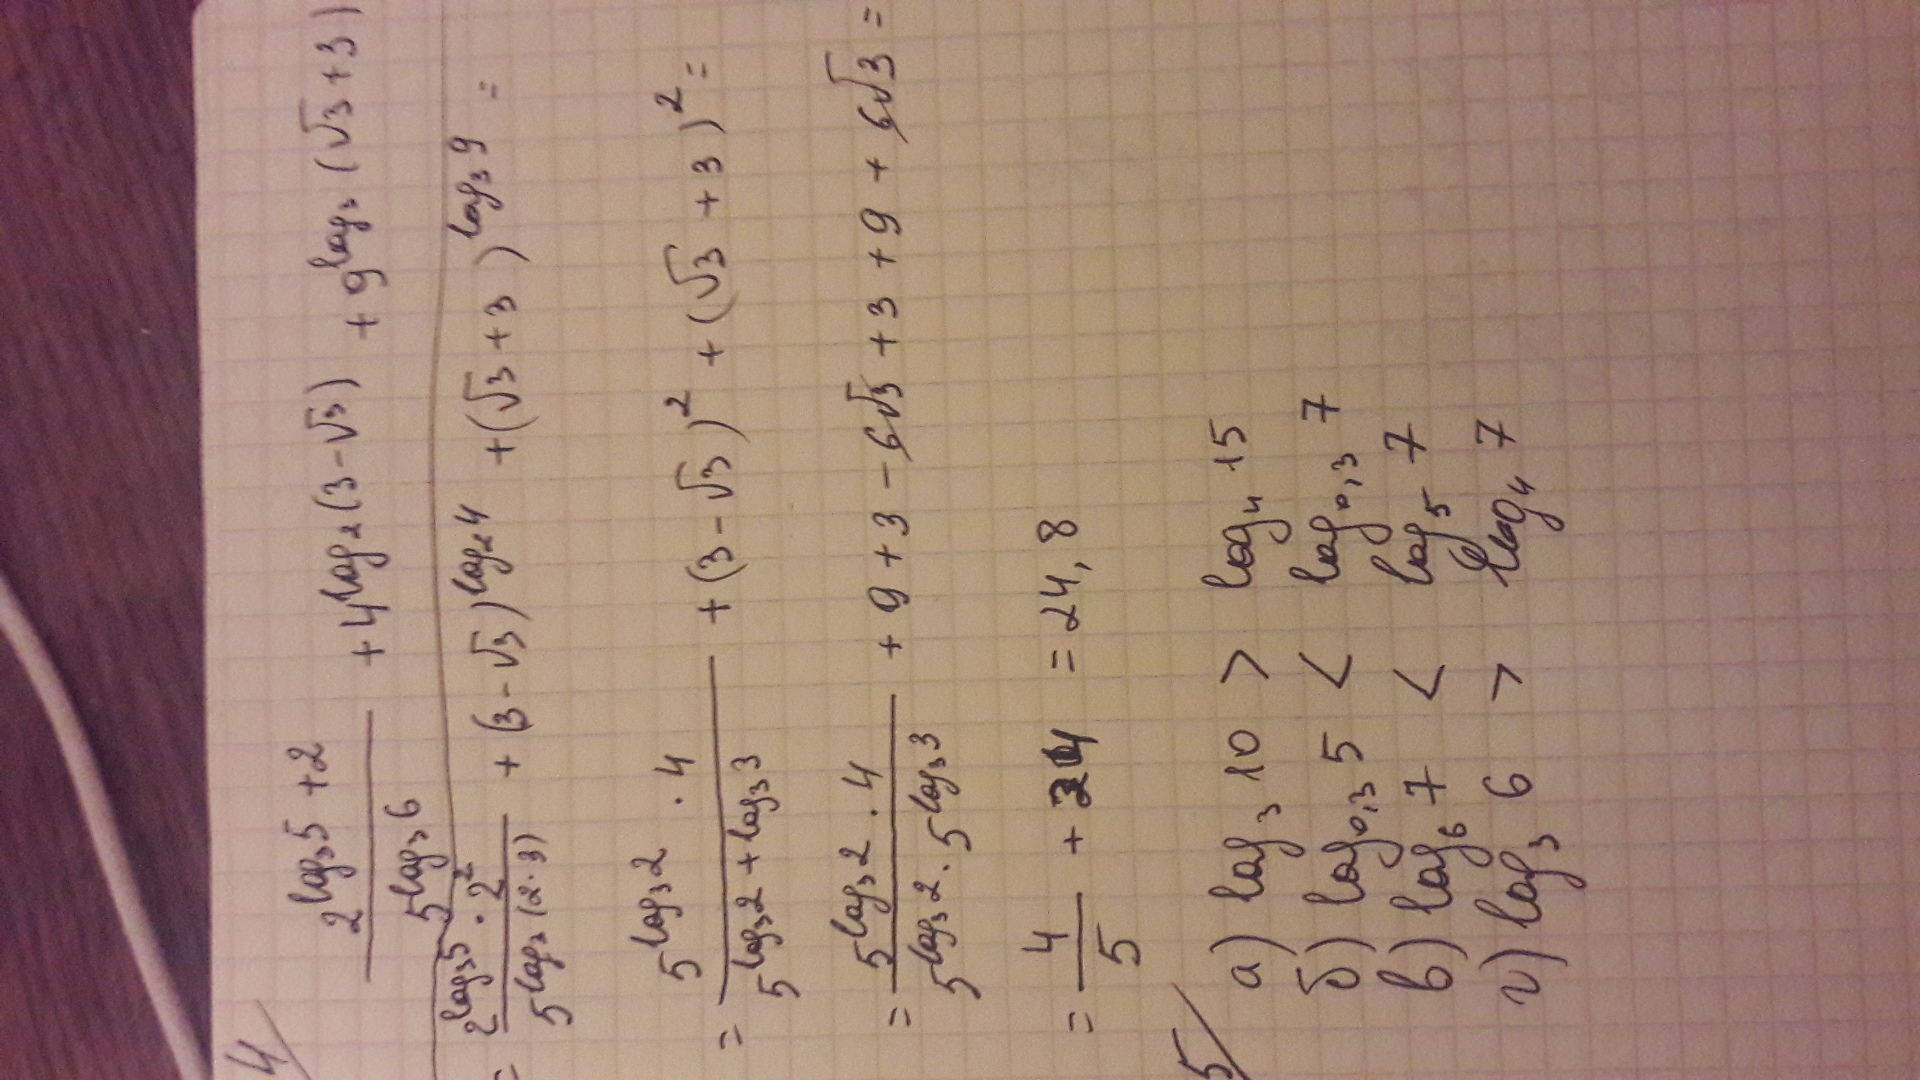 4/ 2^{log₃5+2}/5^{log₃6} + 4^{log₂(3-√3)} + 9^{log₃(√3+3)}
= 2^{log₃5} · 2²/5^{log₃(2·3)} + (3-√3)^{log₂4} + (√3+3)^{log₃9} =
= 5^{log₃2} · 4/5^{log₃2+log₃3} + (3-√3)² + (√3+3)² =
= 5^{log₃2} · 4/5^{log₃2} · 5^{log₃3} + 9+3-6√3+3+9+6√3 =
= 4/5 + 24 = 24,8
5/ а) log₃10 > log₄15
б) log₀,₃5 < log₀,₃7
в) log₆7 < log₅7
г) log₃6 > log₄7